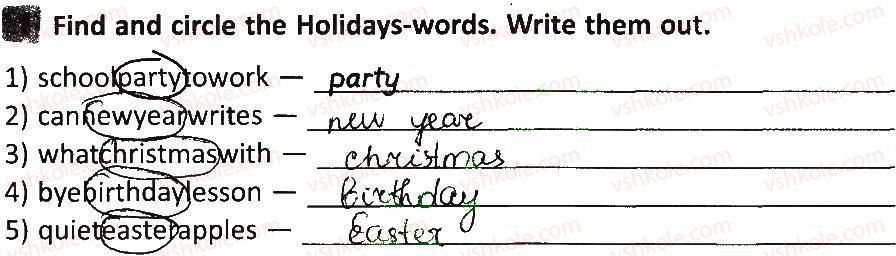 1 Find and circle the Holidays-words. Write them out.
1) schoolpartytowork — party
2) cannewyearwrites — new year
3) whatchristmaswith — christmas
4) byebirthdaylesson — birthday
5) quieteasterapples — Easter
vshkole.com